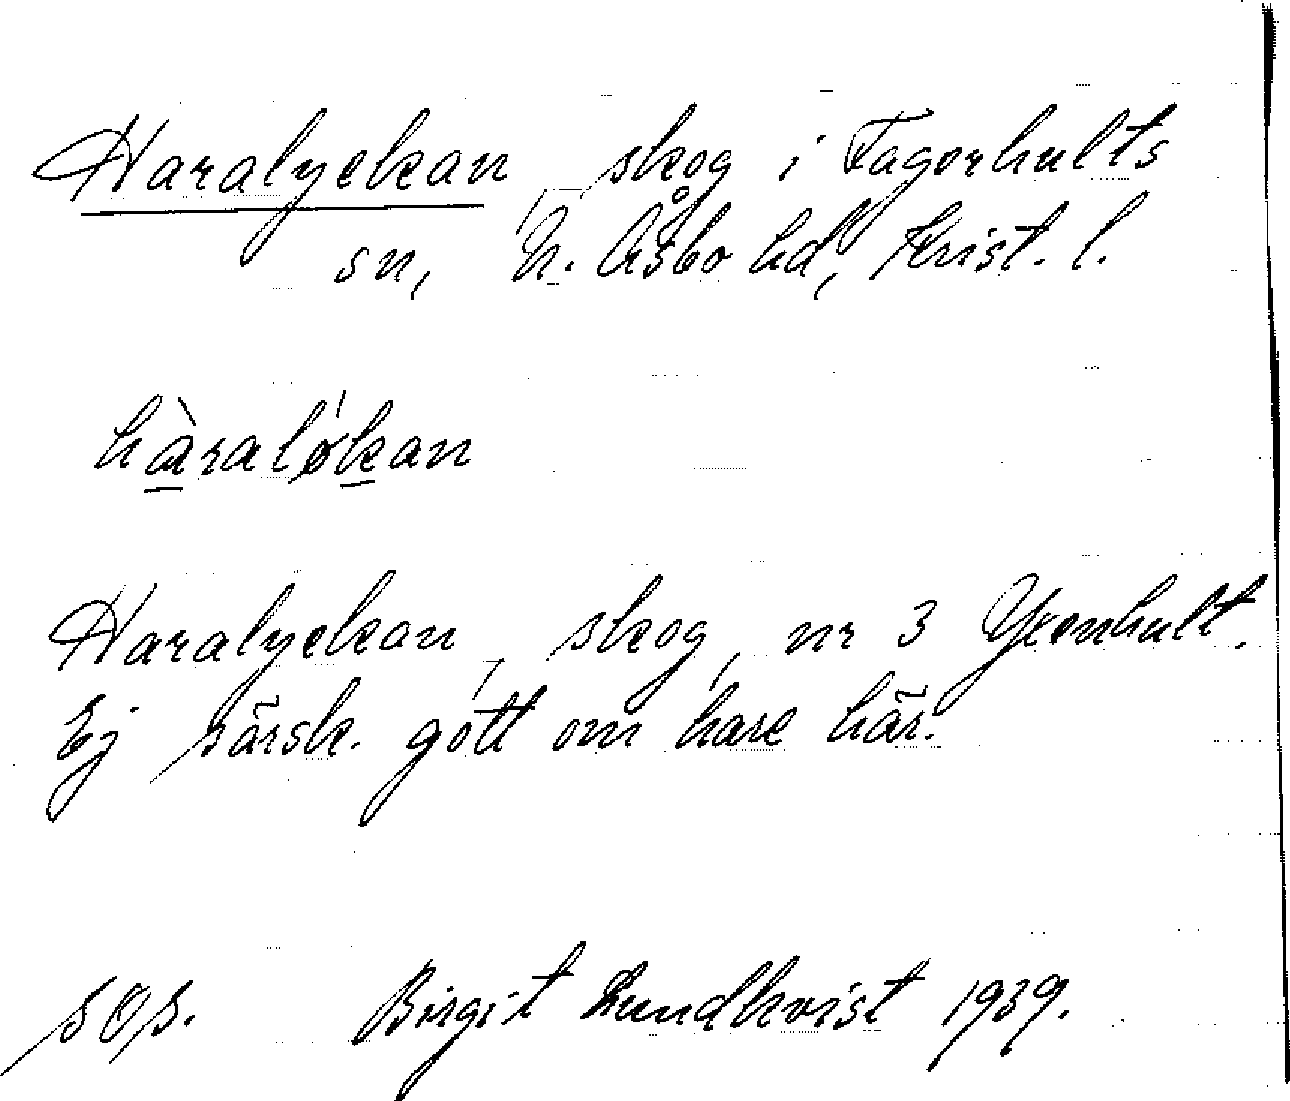 Haralyckan, skog i Fagerhults
sn, N. Åsbo hd, Krist. l.
hàralø̍kan
Haralyckan, skog, nr 3 Yxenhult.
Ej särsk. gott om hare här.
s Ørs.
Birgit Lundkvist 1939.